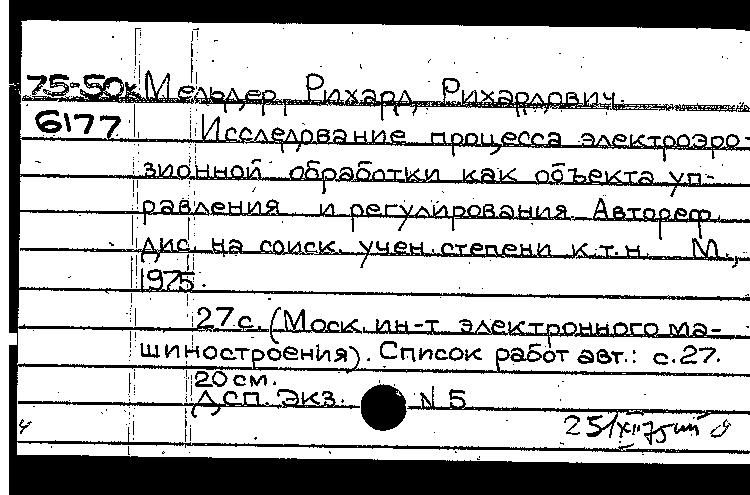 75-50к Мельдер, Рихард Рихардович.
6177 Исследование процесса электроэро-
зионной обработки как объекта уп-
равления и регулирования Автореф.
дис. на соиск. учен. степени к.т.н. М.,
1975.
27 с. (Моск. ин-т электронного ма-
шиностроения). Список работ авт.: с. 27.
20 см.
ДСП. Экз. N 5
25/XII 75